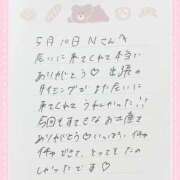 5月10日 Nさんへ
会いに来てくれて本当に
ありがとう♡ 出張の
タイミングでまた会いに
来てくれてうれしかった!!
5回もすてきなお土産で
ありがとう♡いっぱい
できて、とっても
しかったです♡